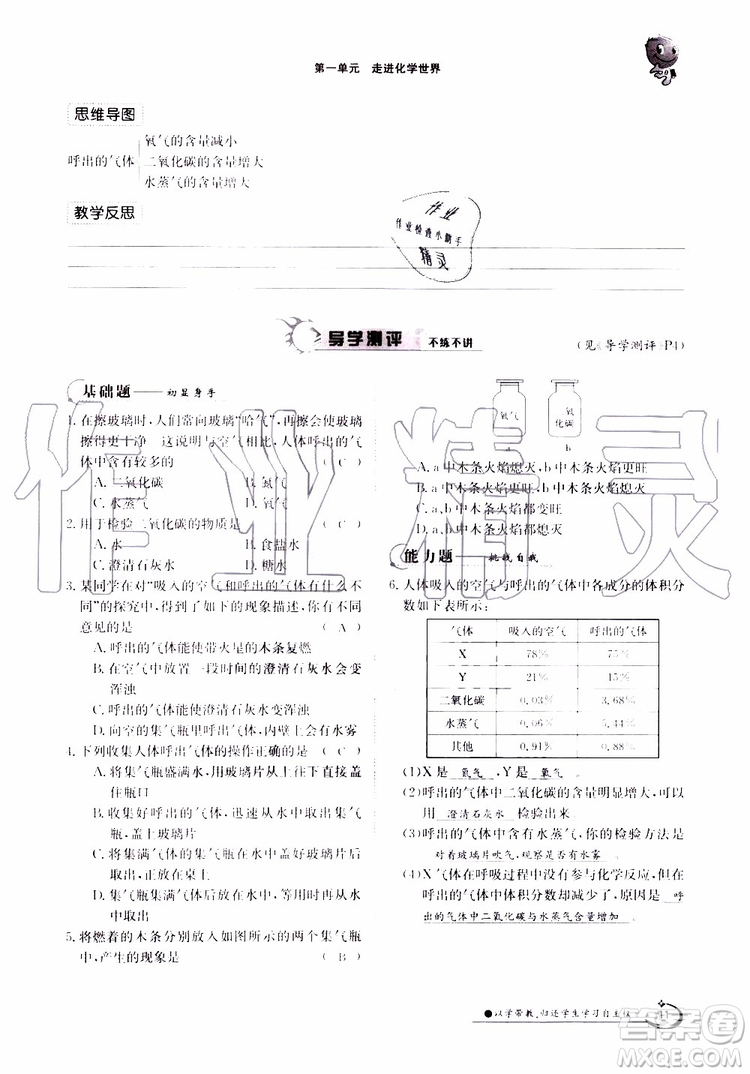 第一单元 走进化学世界
思维导图
氧气的含量减小
呼出的气体 二氧化碳的含量增大
水蒸气的含量增大
教学反思
作业
作业检查小帮手
精灵
导学测评 不练不讲
(见《导学测评》P1)
基础题——初显身手
1. 在擦玻璃时,人们常向玻璃“哈气”,再擦会
擦得更干净。这说明与空气相比,人体呼出的气
体中含有较多的 ( C )
A. 二氧化碳 B. 氮气
C. 水蒸气 D. 氧气
2. 用于检验二氧化碳的物质是 ( C )
A. 水 B. 蒸馏水
C. 澄清石灰水 D. 糖水
3. 某同学在“吸入的空气和呼出的气体有什么不
同”的探究中,得到了如下的现象描述,你有不同
意见的是 ( A )
A. 呼出的气体能使带火星的木条复燃
B. 在空气中放置一段时间的澄清石灰水会变
浑浊
C. 呼出的气体能使澄清石灰水变浑浊
D. 向空的集气瓶里呼出气体,内壁上会有水雾
4. 下列收集人体呼出气体的操作正确的是 ( C )
A. 将集气瓶盛满水,用玻璃片从上往下压住盖
住瓶口
B. 收集好呼出的气体,迅速从水中取出集气
瓶,盖上玻璃片
C. 将集满气体的集气瓶在水中盖好玻璃片取
出,正放在桌上
D. 集气瓶集满水后,等用时再将集气瓶从水
中取出
5. 将燃着的木条分别放入如图所示的两个集气瓶
中,产生的现象是 ( B )
氧气
二氧化碳
a b
A. a中木条火焰熄灭,b中木条火焰更旺
B. a中木条火焰更旺,b中木条火焰熄灭
C. a、b中木条火焰都变旺
D. a、b中木条火焰都熄灭
能力题——挑战自我
6. 人体吸入的空气与呼出的气体中各成分的体积分
数如下表所示:
气体 吸入的空气 呼出的气体
X 78% 75%
Y 21% 15%
二氧化碳 0.03% 3.68%
水蒸气 0.06% 5.44%
其他 0.91% 0.88%
(1)X是 氮气 ,Y是 氧气 。
(2)呼出的气体中二氧化碳的含量明显增大,可以
用 澄清石灰水 检验出来。
(3)呼出的气体中含有水蒸气,你的检验方法是
对着玻璃片吹气,观察是否有水雾 。
(4)X气体在呼吸过程中没有参与化学反应,但呼
出的气体中体积分数却减少了,原因是 呼
出的气体中二氧化碳与水蒸气含量增加 。
●以学带教,归还学生学习自主权
11
作业精灵